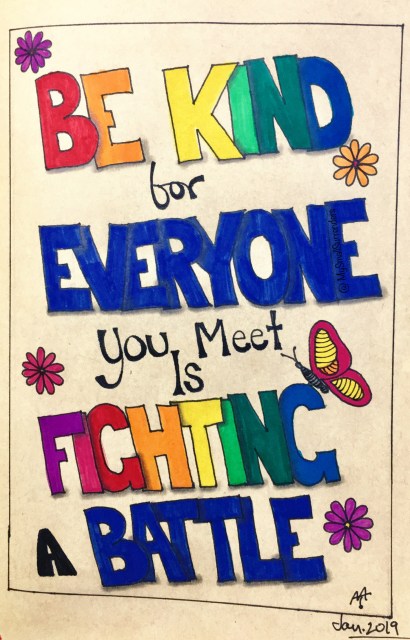 BE KIND
for
EVERYONE
You Meet
Is
FIGHTING
A BATTLE
AA
Jan. 2019